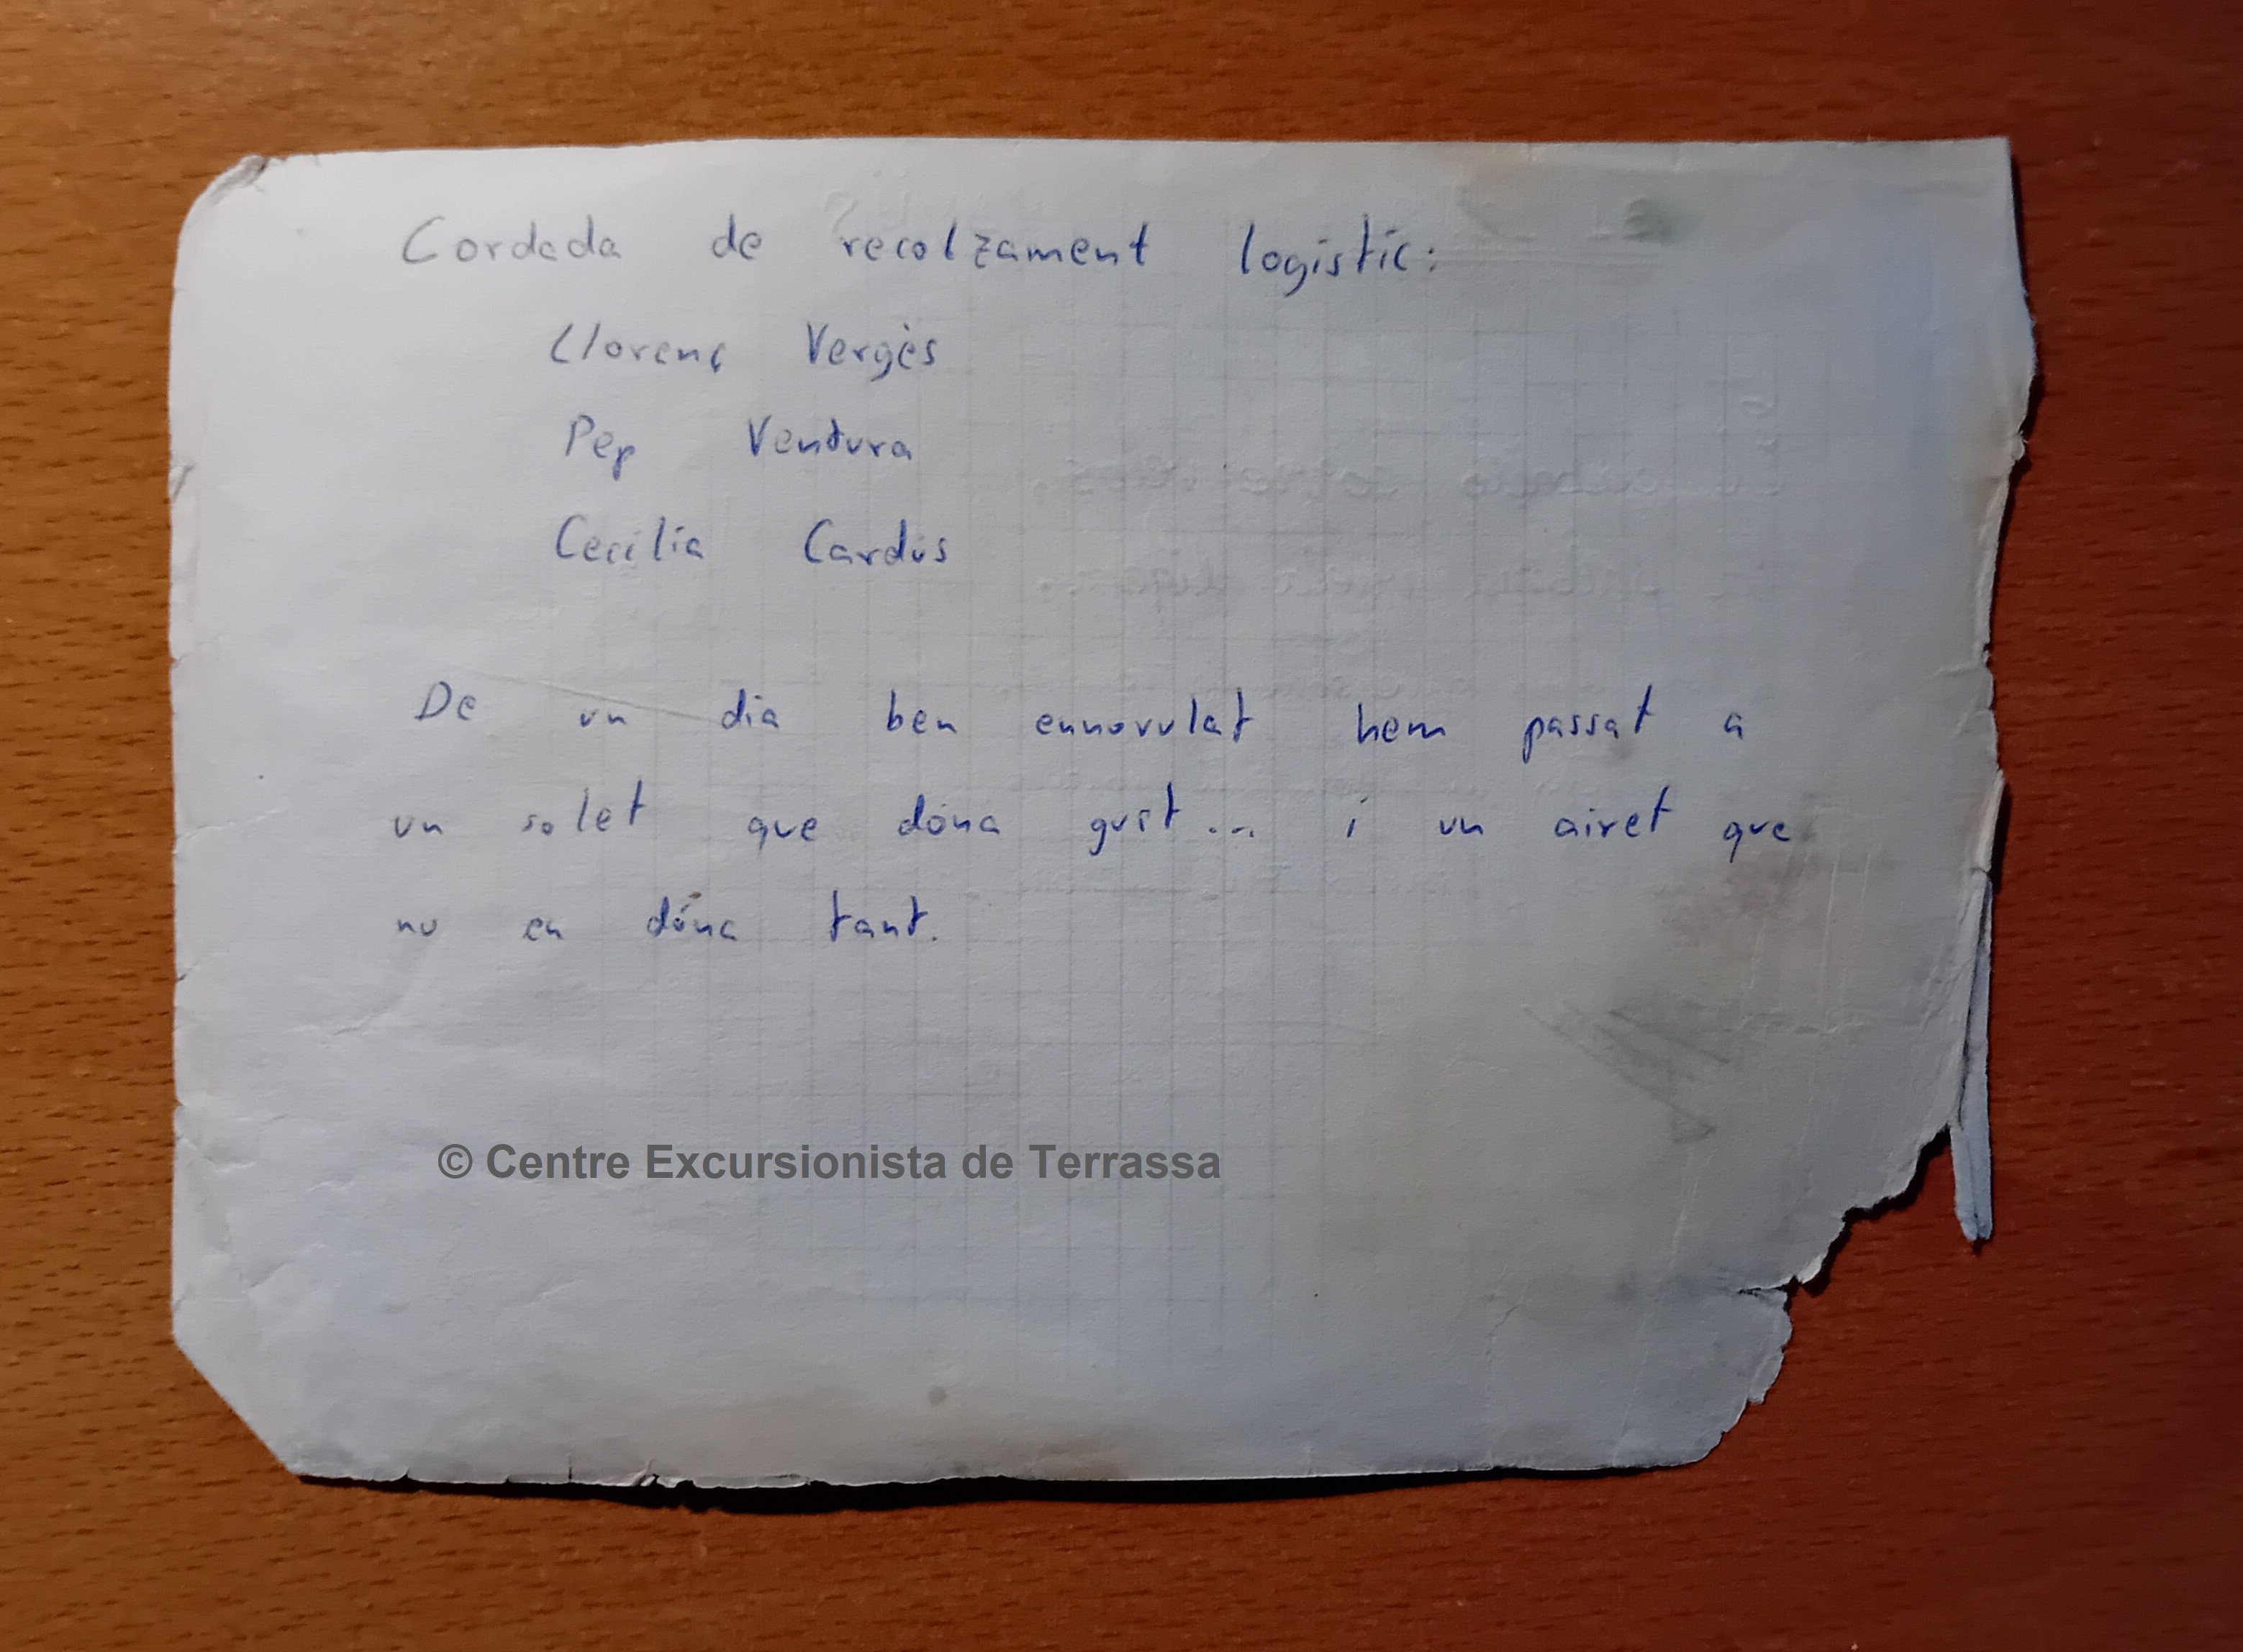 Cordada de recolzament logístic:
Llorenç Vergès
Pep Ventura
Cecília Cardús
De un dia ben ennuvulat hem passat a
un solet que dóna gust... i un airet que
no en dóna tant.
© Centre Excursionista de Terrassa